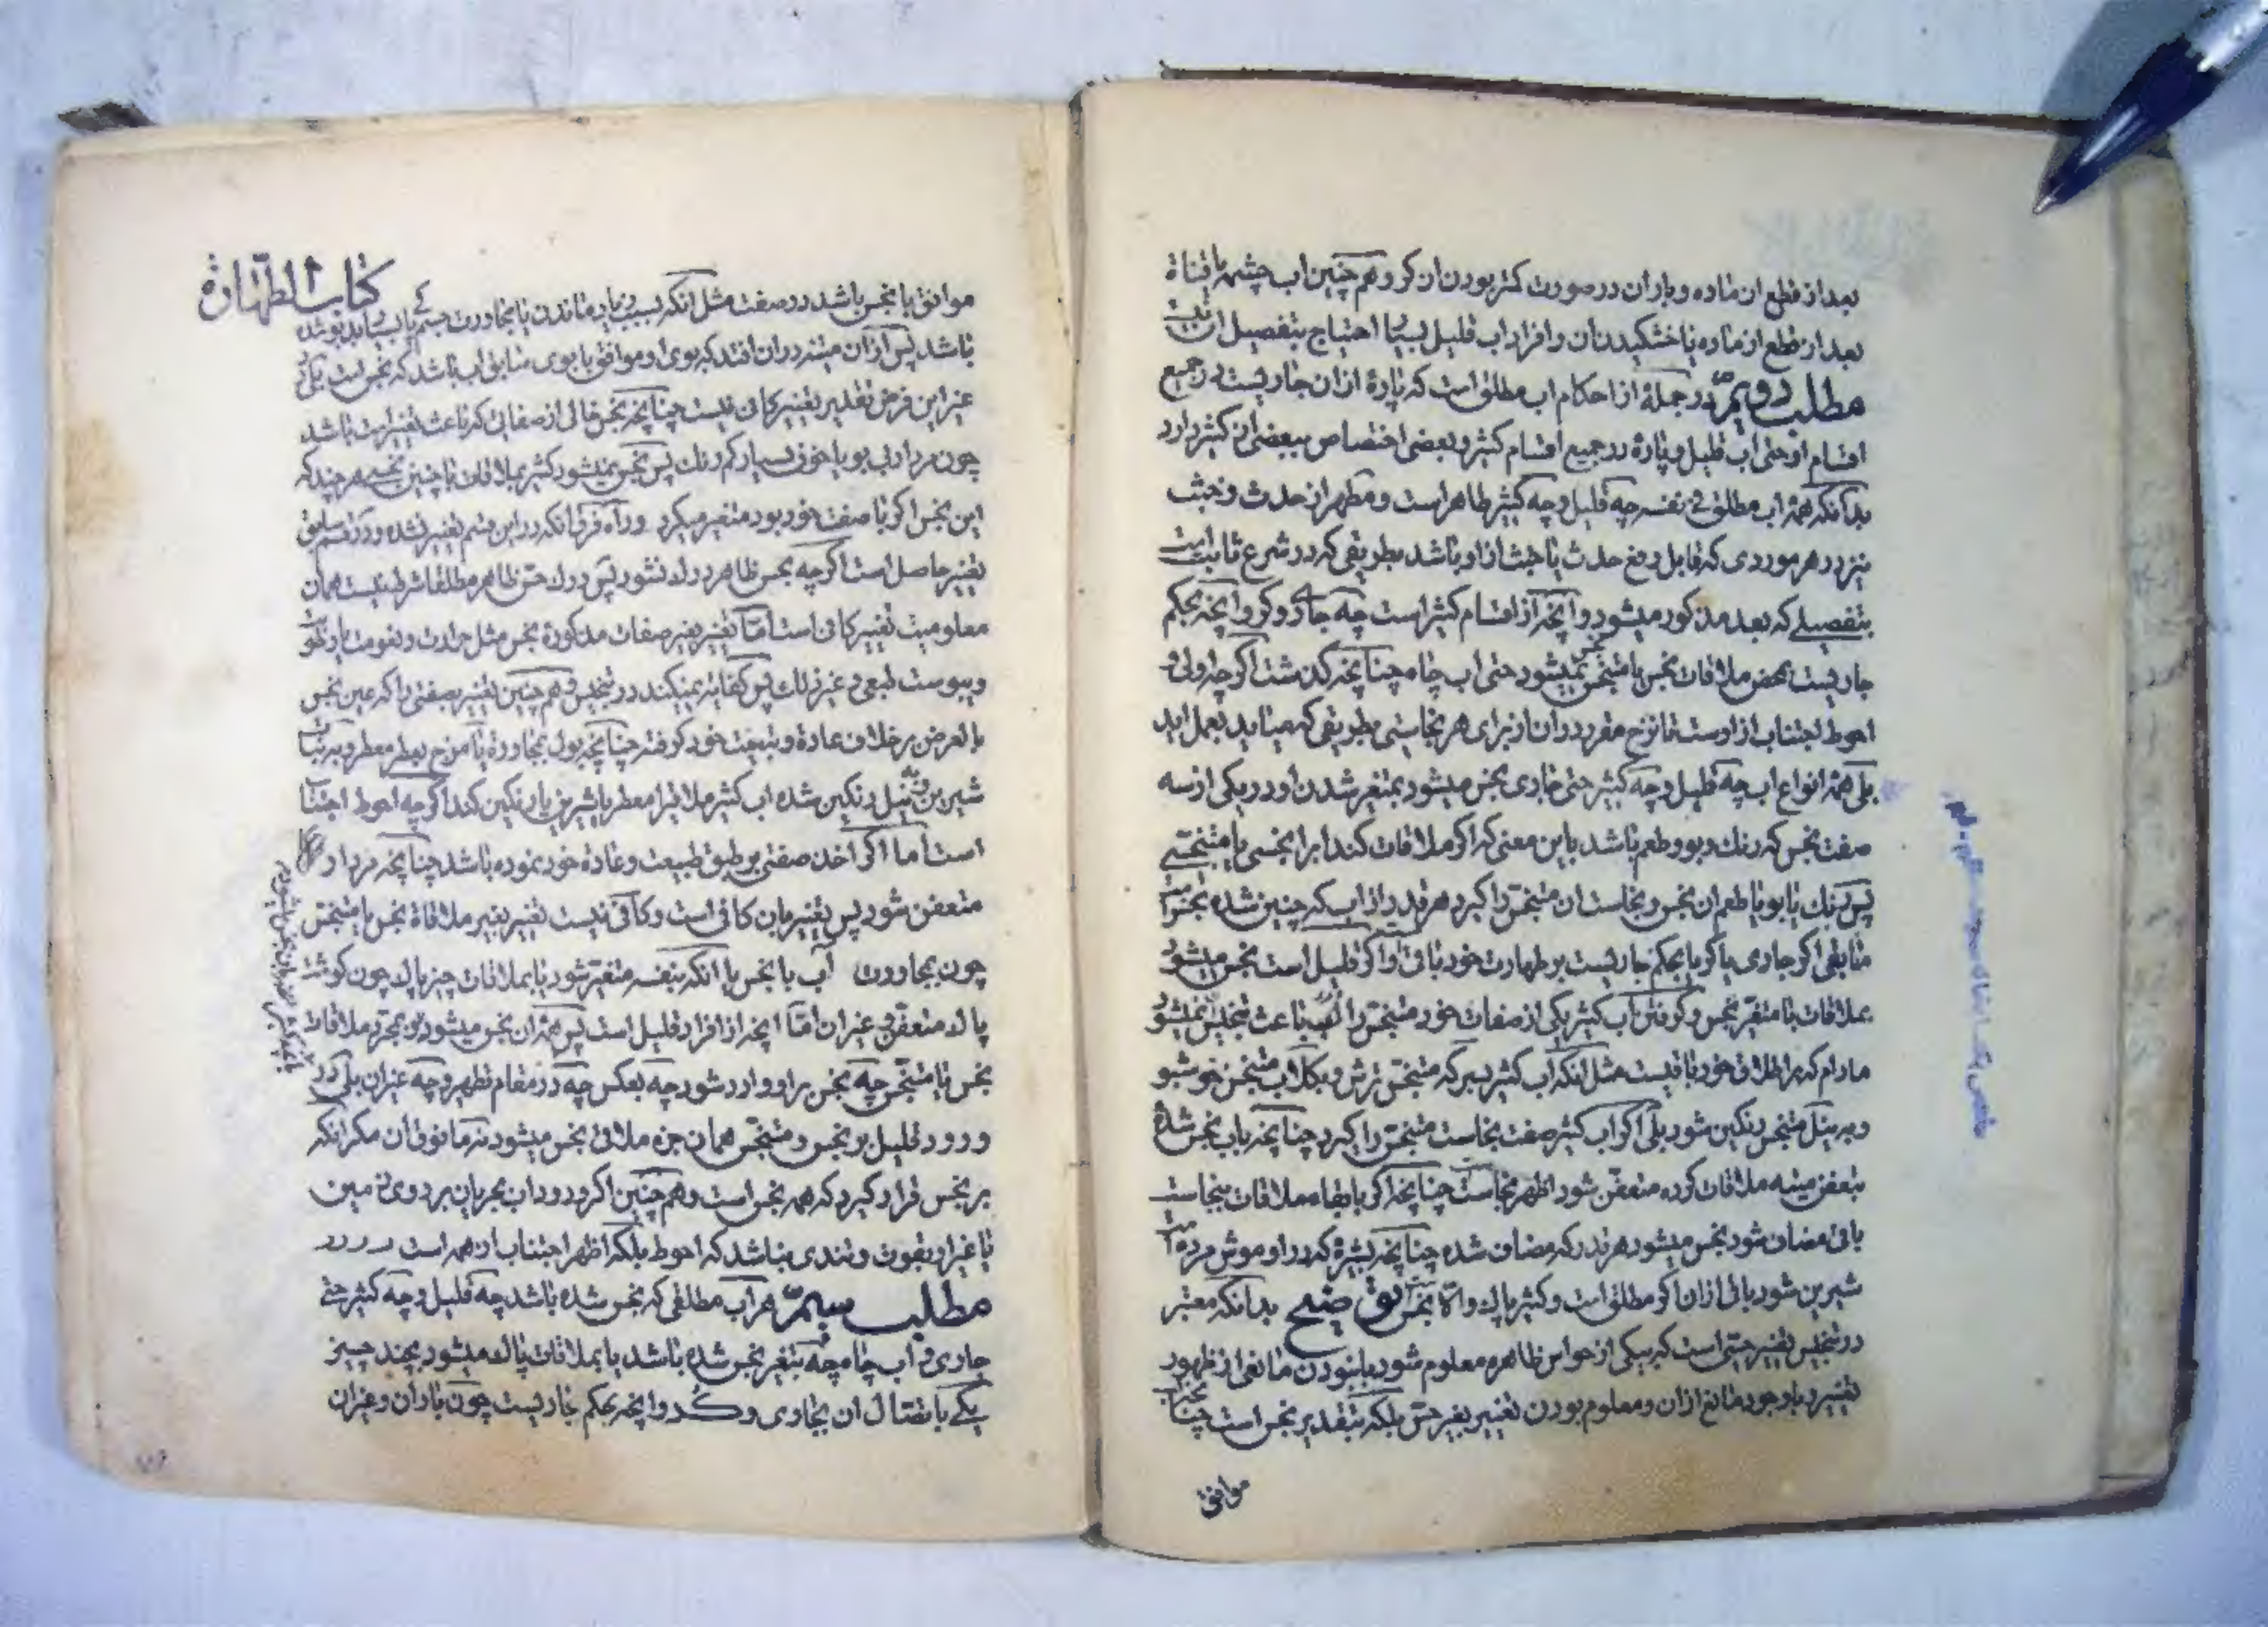 بعد از قطع از ماده و باران در صورت کمتر بودن ان کر و هم چنین اب چشمه یا قناة
بعد از قطع از ماده یا خشکیدن ان و افراد اب قلیل بسیار احتیاج بتفصیل ان نیست
مطلب دویم در جملهٔ از احکام اب مطلق است که پارهٔ از ان جاریست در جمیع
اقسام او حتی اب قلیل و پاره در جمیع اقسام کثیر و بعضی اختصاص ببعضی از کثیر دارد
بدانکه همه اب مطلق فی نفسه چه قلیل و چه کثیر طاهر است و مطهر از حدث و خبث
نیز در هر موردی که قابل رفع حدث یا خبث از او باشد بطریقی که در شرع ثابت است
بتفصیلی که بعد مذکور میشود و انچه از اقسام کثیر است چه جاری و کر و انچه بحکم
جاریست بمحض ملاقات نجس یا متنجس نجس نمیشود حتی اب چاه چنانچه گذشت اگر چه اولی و
احوط اجتناب از اوست تا نزح مقرر در ان از برای هر نجاستی بطریقی که میاید بعمل اید
بلی همه انواع اب چه قلیل و چه کثیر حتی جاری نجس میشود بمتغیر شدن او در یکی از سه
صفت نجس که رنک و بو و طعم باشد باین معنی که اگر ملاقات کند ابرا نجسی یا متنجسی
پس رنک یا بو یا طعم ان نجس و نجاست ان متنجس را گیرد هر قدر از اب که چنین شده نجس است
مابقی اگر جاری یا کر یا بحکم جاریست بر طهارت خود باقی و اگر قلیل است نجس میشود
بملاقات با متغیر نجس و گرفتن اب کثیر یکی از صفات خود متنجس را باعث تنجیس نمیشود
مادام که بر اطلاق خود باقیست مثل انکه اب کثیر بسرکه متنجس ترش و بگلاب متنجس خوشبو
و به نیل متنجس رنگین شود بلی اگر اب کثیر صفت نجاست متنجس را گیرد چنانچه باب نجس شده
بتعفن میته ملاقات کرده متعفن شود اظهر نجاست چنانچه اگر با بقاء ملاقات بنجاست
باقی مضاف شود نجس میشود هر قدر که مضاف شده چنانچه بشیره که در او موش مرده است
شیرین شود باقی ازان اگر مطلق است و کثیر پاک والا نجس توضیح بدانکه معتبر
در تنجیس تغییر حسی است که بیکی از حواس ظاهره معلوم شود با نبودن مانعی از ظهور
تغییر و با وجود مانع ازان و معلوم بودن تغییر بغیر حس بلکه بتقدیر نجس است
موافق
کتاب الطهارة
موافق با نجس باشد در صفت مثل انکه بسبب زیاد ماندن یا مجاورت جسم
باشد پس ازان میته در ان افتد که بوی او موافق با بوی سابق اب باشد که نجس است
غیر این فرض تقدیر تغییر کافی نیست چنانچه نجس خالی از صفاتی که باعث تغییر است باشد
چون مردار بی بو یا خون بسیار کم رنک پس نجس نمیشود کثیر بملاقات با چنین نجسی هر چند که
این نجس اگر با صفت خود بود متغیر میکرد و راه فرق انکه در این قسم تغییر نشده و در قسم سابق
تغییر حاصل است اگر چه بحس ظاهر درک نشود پس درک حس ظاهر مطلقا شرط نیست همان
معلومیت تغییر کافی است اما تغییر بغیر صفات مذکوره نجس مثل حرارت و
و یبوست طبعی و غیر ذلک پس کفایت نمیکند در تنجیس و هم چنین تغییر بصفتی را که عین نجس
بالعرض بر خلاف عادة و طبیعت خود گرفته چنانچه بول بمجاورة یا مزج بعطر معطر و به نبات
شیرین و به نیل رنگین شده اب کثیر ملاقی را معطر یا شیرین یا رنگین کند اگر چه احوط اجتناب
است اما اگر اخذ صفتی بر طبق طبیعت و عادة خود نموده باشد چنانچه مردار
متعفن شود پس تغییر بان کافی است و کافی نیست تغییر بغیر ملاقاة نجس یا متنجس
چون بمجاورت اب با نجس یا انکه بنفسه متغیر شود یا بملاقات چیز پاک چون گوشت
پاک متعفن و غیر ان اما انچه از افراد قلیل است پس همه ان نجس میشود بمجرد ملاقات
نجس یا متنجس چه نجس بر او وارد شود چه بعکس چه در مقام تطهیر و چه غیر ان بلی در
ورود قلیل بر نجس و متنجس همان جزء ملاقی نجس میشود نه مافوق ان مگر انکه
بر نجس قرار گیرد که همه نجس است و هم چنین اگر ورود اب بجریان بر روی زمین
یا غیر او بقوت و تندی نباشد که احوط بلکه اظهر اجتناب از همه است
مطلب سیم هر اب مطلقی که نجس شده باشد چه قلیل و چه کثیر حتی
جاری و اب چاه چه بتغیر نجس شده باشد یا بملاقات پاک میشود بچند چیز
یکی باتصال ان بجاری و کر و انچه بحکم جاریست چون باران و غیر ان